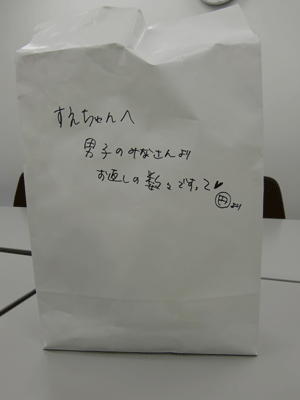 すえちゃんへ
男子のみなさんより
お返しの数々です。て♥
円より